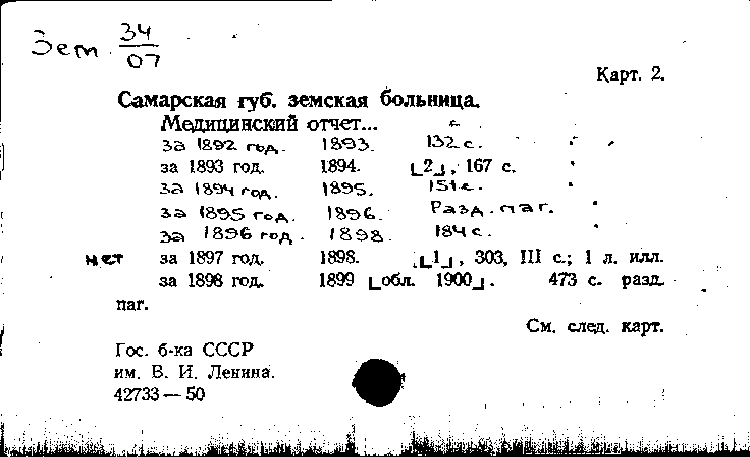 Зем. 34/07
Карт. 2.
Самарская губ. земская больница.
Медицинский отчет...
за 1892 год. 1893. 132 с.
за 1893 год. 1894. [2], 167 с.
за 1894 год. 1895. 151 с.
за 1895 год. 1896. Разд. паг.
за 1896 год. 1898. 184 с.
нет за 1897 год. 1898. [1], 303, III с.; 1 л. илл.
за 1898 год. 1899 [обл. 1900]. 473 с. разд.
паг.
См. след. карт.
Гос. б-ка СССР
им. В. И. Ленина.
42733 — 50